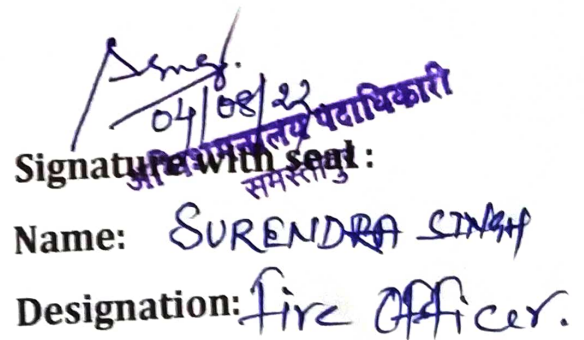 04/08/22
अग्निशमनालय पदाधिकारी
समस्तीपुर
Signature with seal :
Name: SURENDRA SINGH
Designation: Fire Officer.